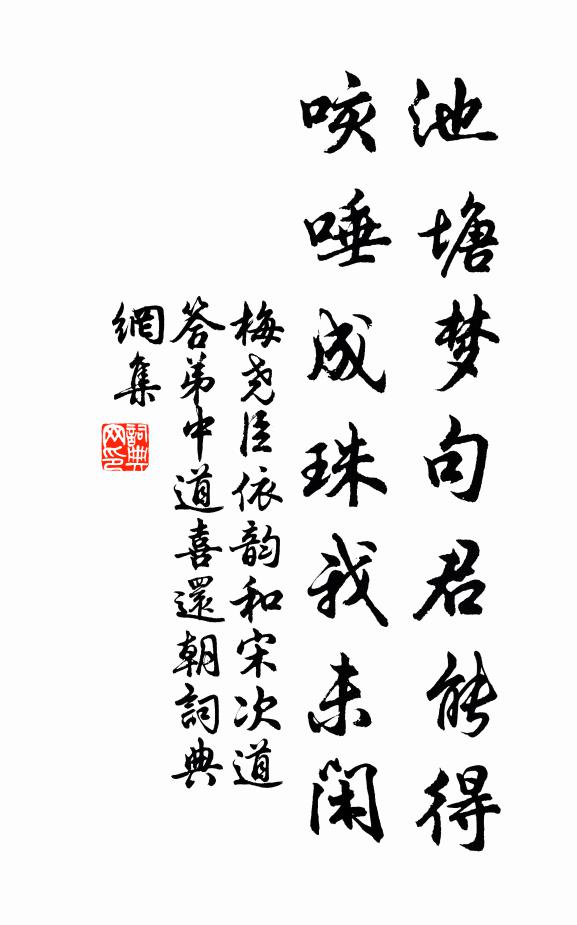 池塘梦句君能得
咳唾成珠我未闲
梅尧臣依韵和宋次道
答弟中道喜還朝詞典
網集
詞典
网印